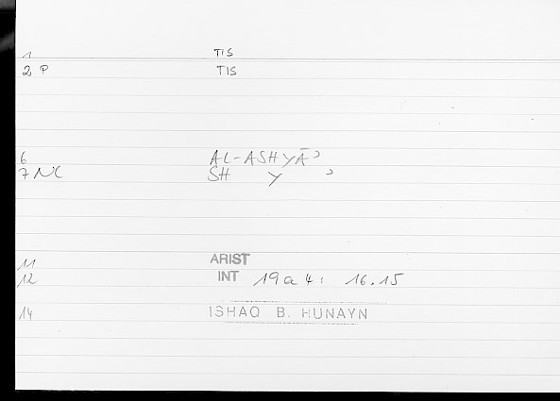 1 TIS
2 P TIS
6 AL-ASHYĀʾ
7 NC SH Y ʾ
11 ARIST
12 INT 19a 4: 16.15
14 ISHAQ B. HUNAYN